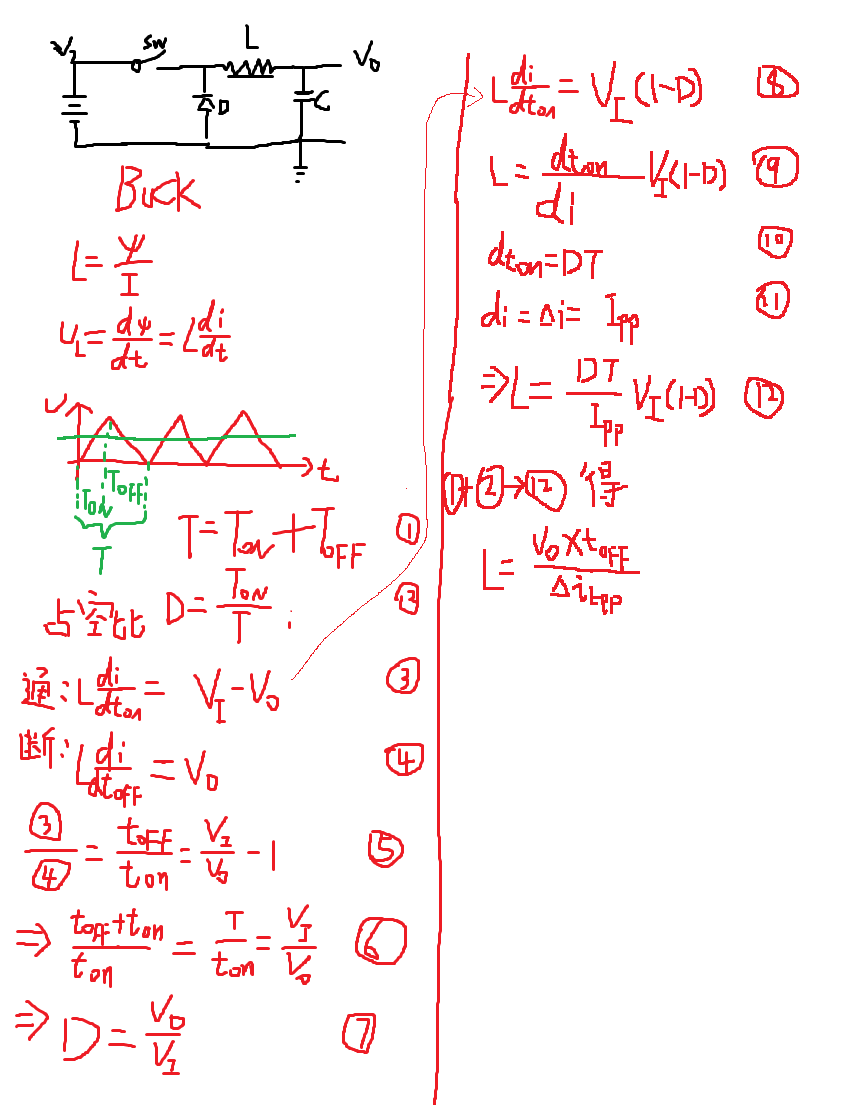 V_I SW L V_0
D C
BUCK
L = ψ/I
U_L = dψ/dt = L di/dt
U
t
T_ON T_OFF
T
T = T_ON + T_OFF ①
占空比 D = T_ON/T ②
通: L di/dt_on = V_I - V_0 ③
断: L di/dt_OFF = V_0 ④
③/④ = t_OFF/t_on = V_I/V_0 - 1 ⑤
⇒ (t_off + t_on)/t_on = T/t_on = V_I/V_0 ⑥
⇒ D = V_0/V_I ⑦
L di/dt_on = V_I(1-D) ⑧
L = dt_on/di V_I(1-D) ⑨
dt_on = DT ⑩
di = Δi = I_pp ⑪
⇒ L = DT/I_pp V_I(1-D) ⑫
①+②→⑫ 得
L = (V_0 × t_off)/Δi_Lpp